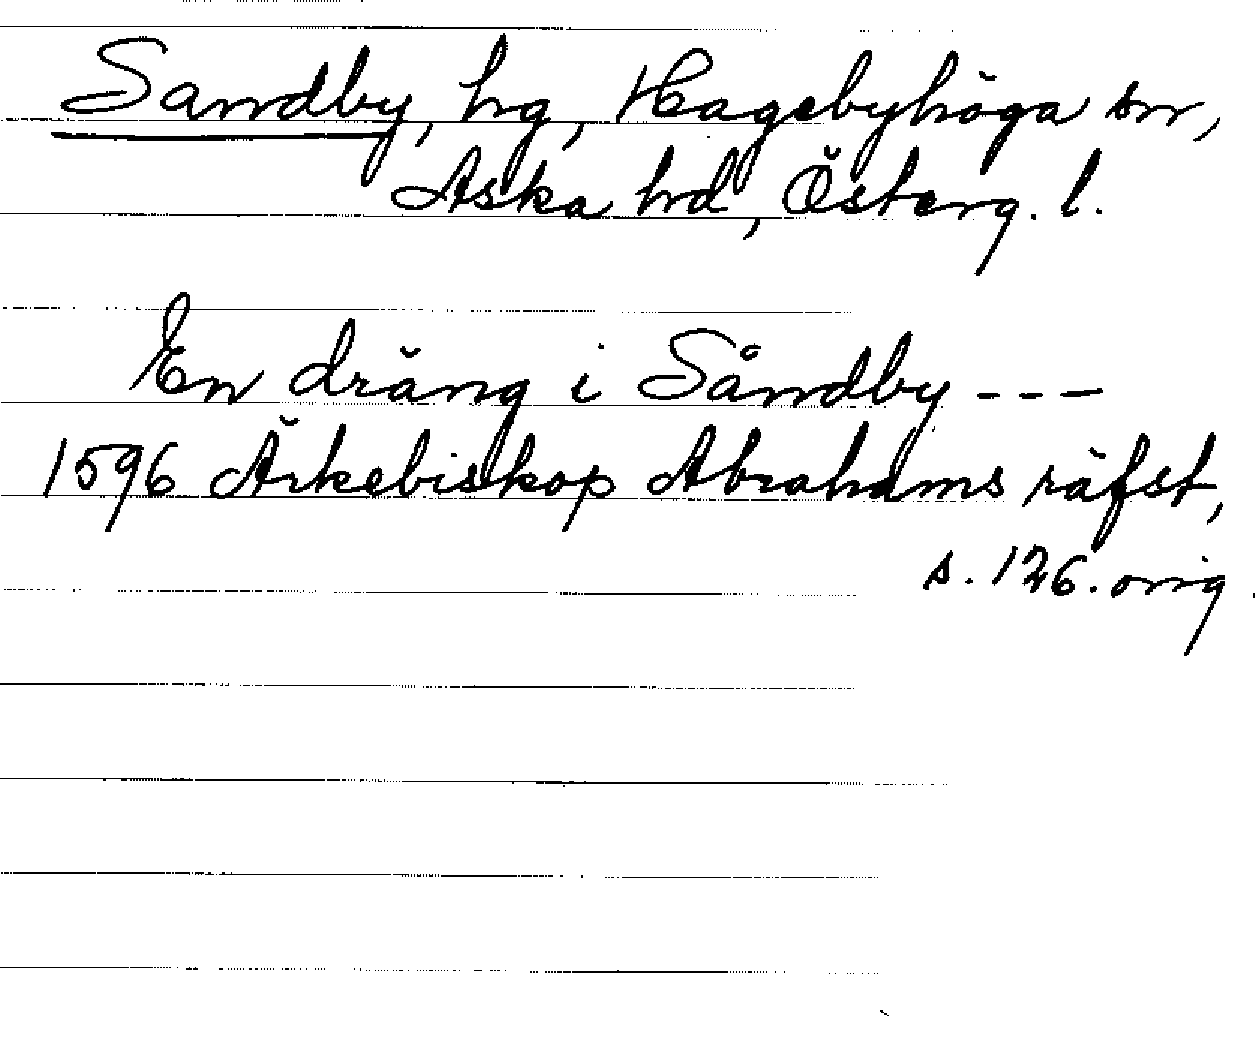 Sandby, hg, Hagebyhöga sn,
Aska hd, Österg. l.
En dräng i Såndby ---
1596 Ärkebiskop Abrahams räfst,
s. 126. orig.